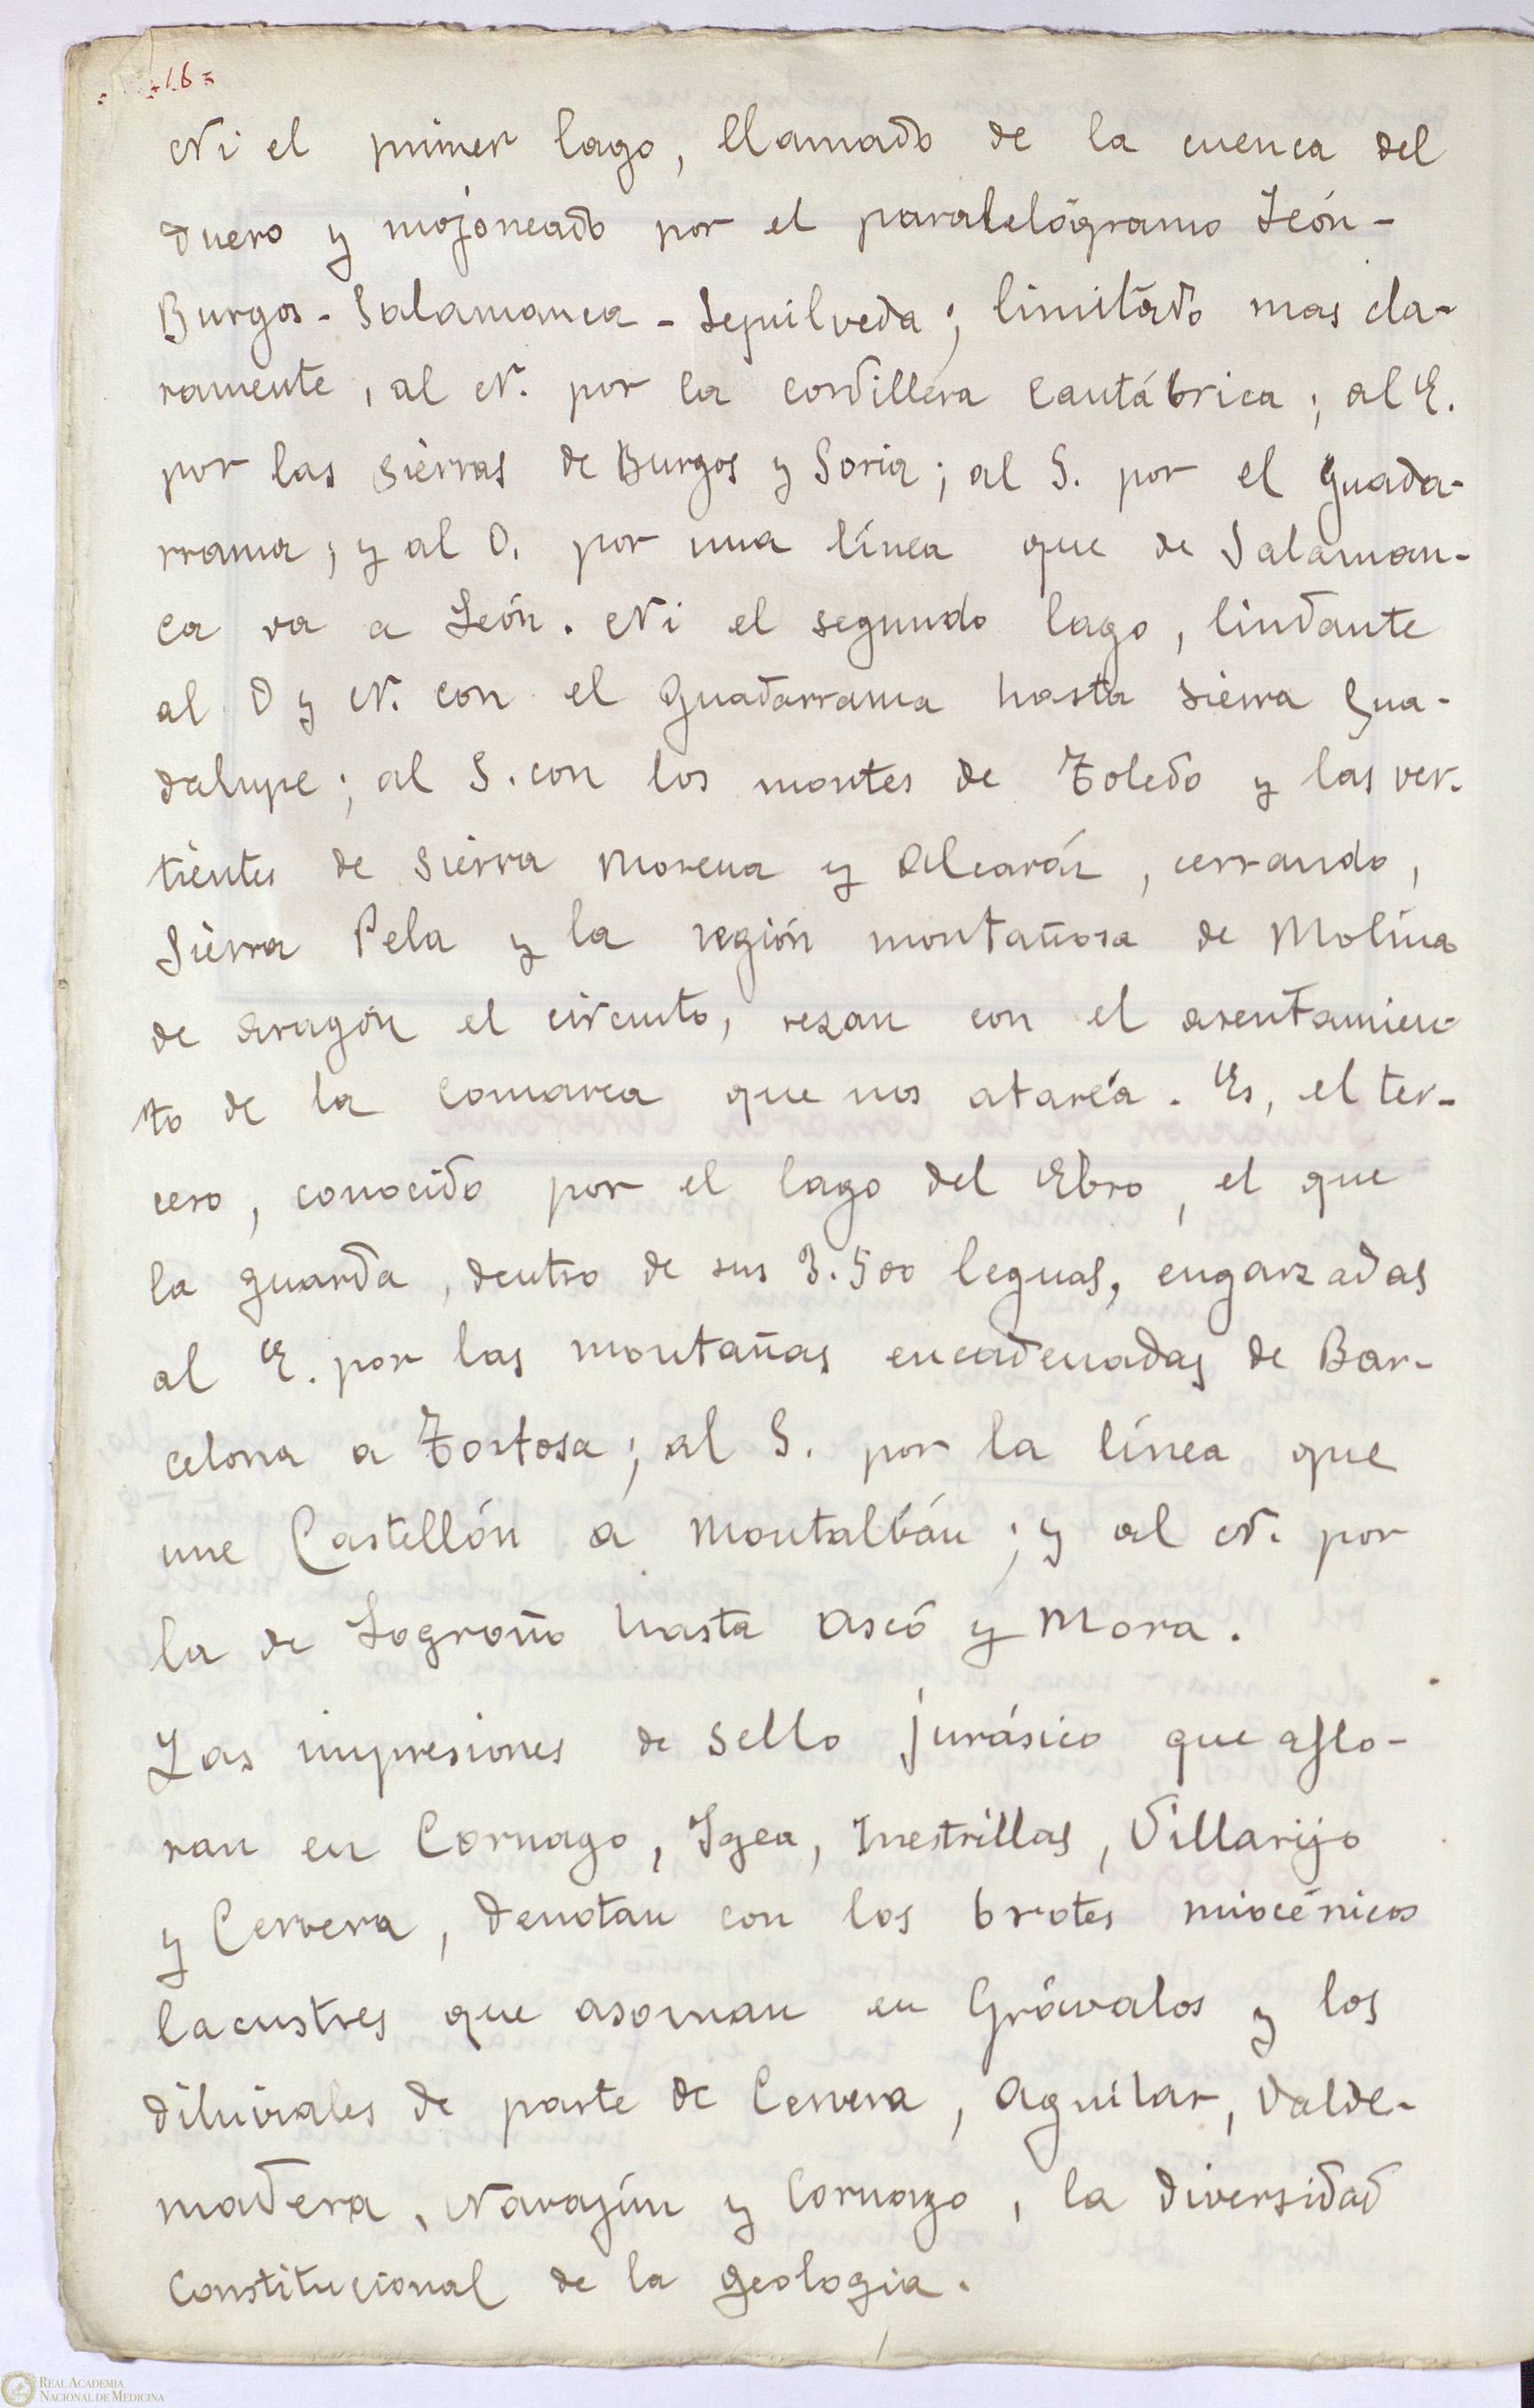 =16=
Ni el primer lago, llamado de la cuenca del
Duero y mojoneado por el paralelógramo León-
Burgos-Salamanca-Sepúlveda; limitado mas cla-
ramente, al N. por la Cordillera Cantábrica; al E.
por las sierras de Burgos y Soria; al S. por el Guada-
rrama; y al O. por una línea que de Salaman-
ca va a León. Ni el segundo lago, lindante
al O y N. con el Guadarrama hasta Sierra Gua-
dalupe; al S. con los montes de Toledo y las ver-
tientes de Sierra Morena y Alcaráz, cerrando,
Sierra Pela y la región montañosa de Molina
de Aragón el circuito, rezan con el asentamien-
to de la Comarca que nos atarea. Es, el ter-
cero, conocido por el lago del Ebro, el que
la guarda, dentro de sus 3.500 leguas, engarzadas
al E. por las montañas encadenadas de Bar-
celona a Tortosa; al S. por la línea que
une Castellón a Montalbán; y al N. por
la de Logroño hasta Ascó y Mora.
Las impresiones de sello jurásico que aflo-
ran en Cornago, Igea, Inestrillas, Villarijo
y Cervera, denotan con los brotes miocénicos
lacustres que asoman en Grávalos y los
diluviales de parte de Cervera, Aguilar, Valde-
madera, Navajún y Cornago, la diversidad
Constitucional de la geologia.
REAL ACADEMIA
NACIONAL DE MEDICINA